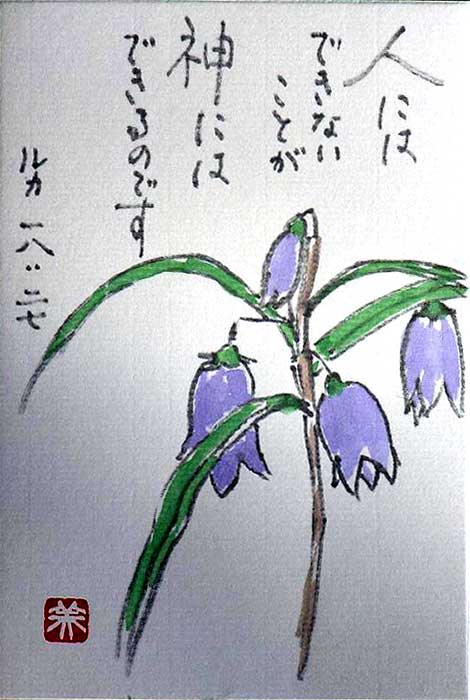 人には
できない
ことが
神には
できるのです
ルカ 一八:二七